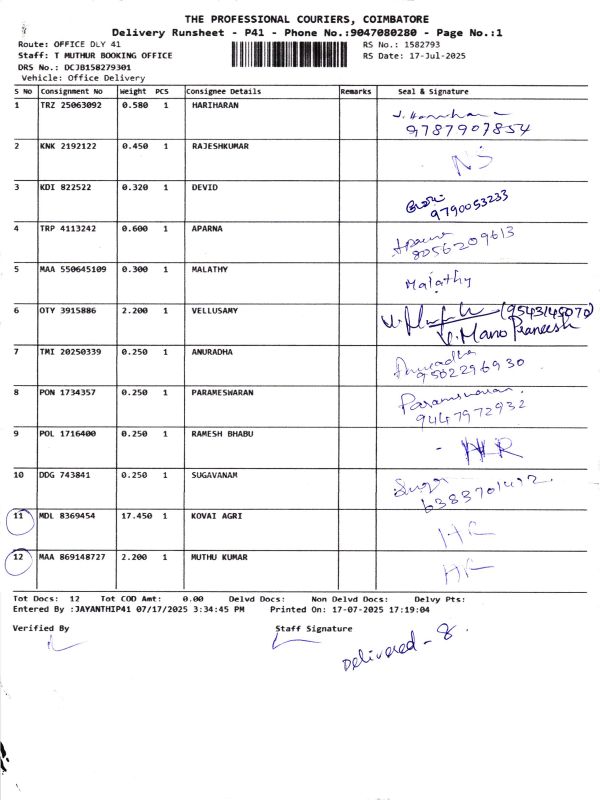 THE PROFESSIONAL COURIERS, COIMBATORE
Delivery Runsheet - P41 - Phone No.:9047080280 - Page No.:1
Route: OFFICE DLY 41 RS No.: 1582793
Staff: T MUTHUR BOOKING OFFICE RS Date: 17-Jul-2025
DRS No.: DCJB158279301
Vehicle: Office Delivery
S No Consignment No Weight PCS Consignee Details Remarks Seal & Signature
1 TRZ 25063092 0.580 1 HARIHARAN
9787907854
2 KNK 2192122 0.450 1 RAJESHKUMAR NS
3 KDI 822522 0.320 1 DEVID
9790053233
4 TRP 4113242 0.600 1 APARNA
8056209613
5 MAA 550645109 0.300 1 MALATHY Malathy
6 OTY 3915886 2.200 1 VELLUSAMY (9543145070)
V. Mano Praneesh
7 TMI 20250339 0.250 1 ANURADHA Anuradha
9502296930
8 PON 1734357 0.250 1 PARAMESWARAN Parameswaran.
9447972932
9 POL 1716400 0.250 1 RAMESH BHABU - HR
10 DDG 743841 0.250 1 SUGAVANAM
11 MDL 8369454 17.450 1 KOVAI AGRI HR
12 MAA 869148727 2.200 1 MUTHU KUMAR HR
Tot Docs: 12 Tot COD Amt: 0.00 Delvd Docs: Non Delvd Docs: Delvy Pts:
Entered By :JAYANTHIP41 07/17/2025 3:34:45 PM Printed On: 17-07-2025 17:19:04
Verified By Staff Signature
Delivered - 8.